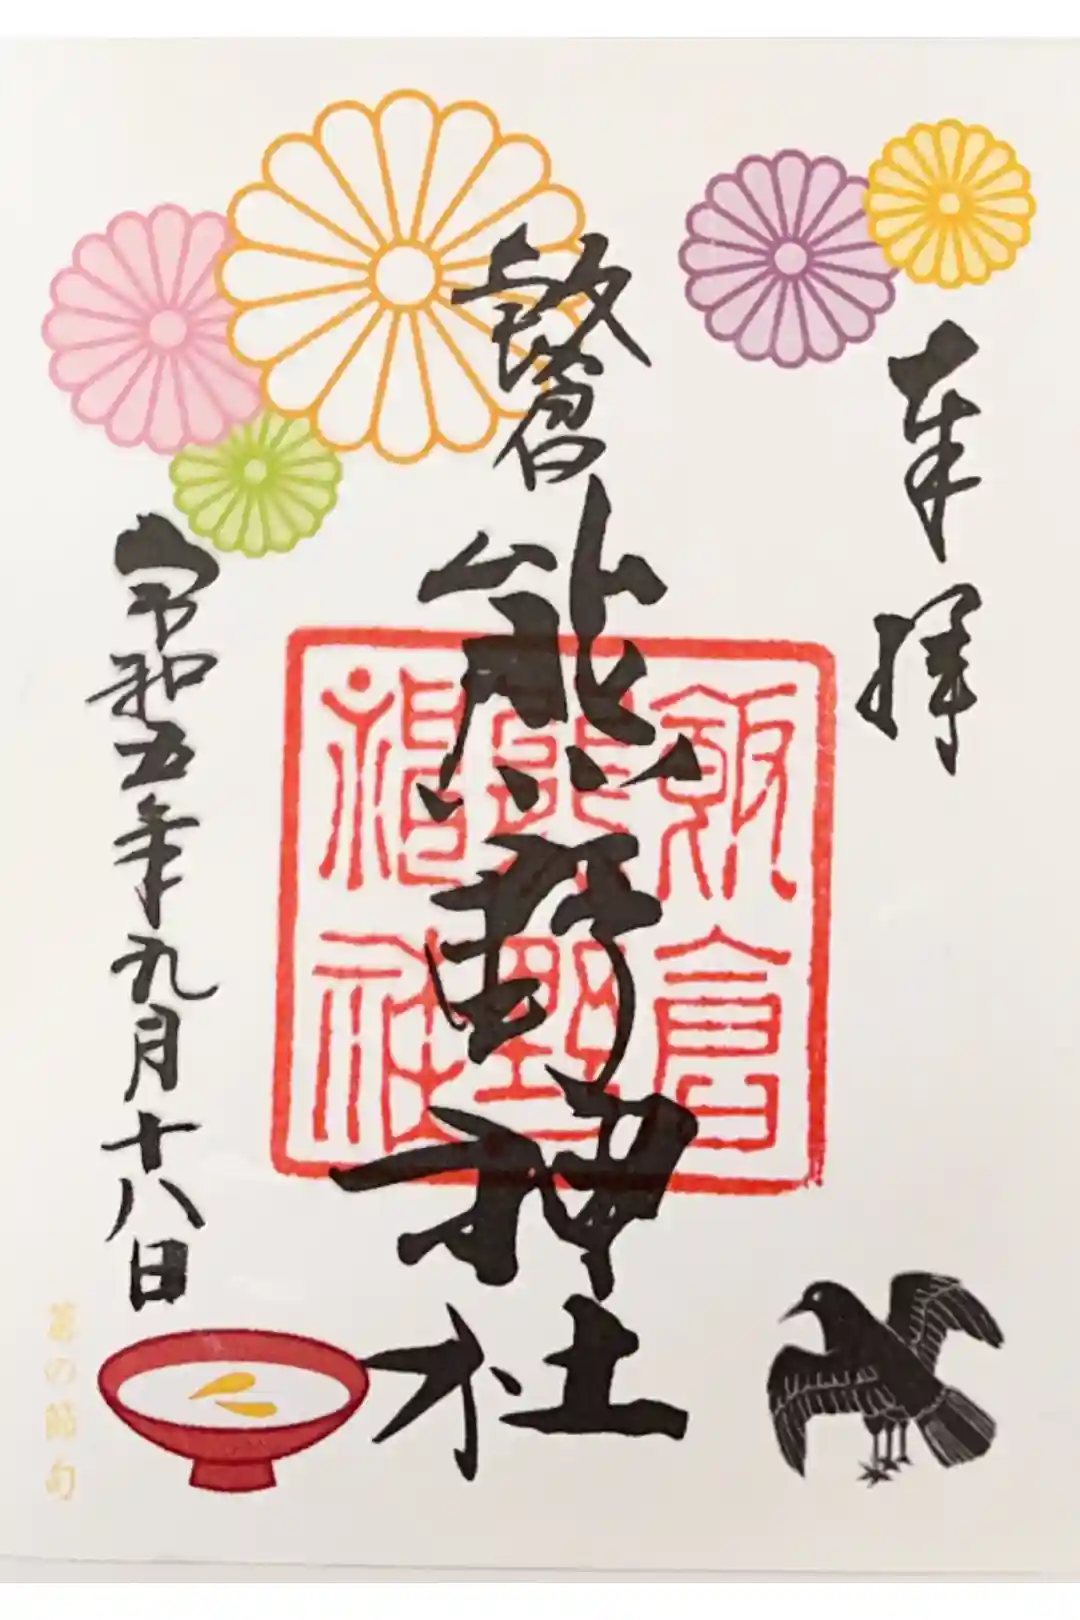 奉拝
飯倉
熊野神社
令和五年九月十八日
菊の節句
飯倉
熊野